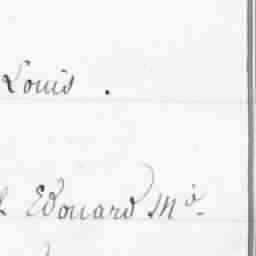 Louis .
Edouard M.ie